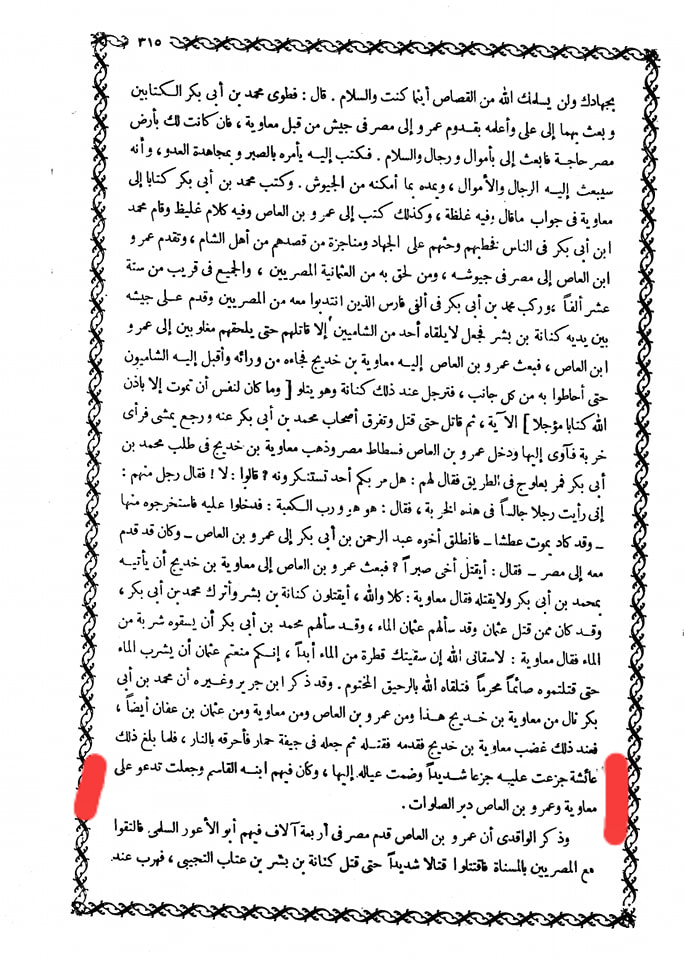 ٣١٥
بجهادك ولن يسلمك الله من القصاص أينما كنت والسلام . قال : فطوى محمد بن أبى بكر الكتابين
وبعث بهما إلى على وأعلمه بقدوم عمرو إلى مصر فى جيش من قبل معاوية ، فان كانت لك بأرض
مصر حاجة فابعث إلى بأموال ورجال والسلام . فكتب إليه يأمره بالصبر وبمجاهدة العدو ، وأنه
سيبعث إليه الرجال والأموال ، ويمده بما أمكنه من الجيوش . وكتب محمد بن أبى بكر كتابا إلى
معاوية فى جواب ماقال وفيه غلظة ، وكذلك كتب إلى عمرو بن العاص وفيه كلام غليظ وقام محمد
ابن أبى بكر فى الناس فخطبهم وحثهم على الجهاد ومناجزة من قصدهم من أهل الشام ، وتقدم عمرو
ابن العاص إلى مصر فى جيوشه ، ومن لحق به من العثمانية المصريين ، والجميع فى قريب من ستة
عشر ألفاً ، وركب محمد بن أبى بكر فى ألفى فارس الذين انتدبوا معه من المصريين وقدم على جيشه
بين يديه كنانة بن بشر فجعل لايلقاه أحد من الشاميين إلا قاتلهم حتى يلحقهم مغلوبين إلى عمرو
ابن العاص ، فبعث عمرو بن العاص إليه معاوية بن خديج فجاءه من ورائه وأقبل إليه الشاميون
حتى أحاطوا به من كل جانب ، فترجل عند ذلك كنانة وهو يتلو [ وما كان لنفس أن تموت إلا باذن
الله كتابا مؤجلا ] الآية ، ثم قاتل حتى قتل وتفرق أصحاب محمد بن أبى بكر عنه ورجع يمشى فرأى
خربة فآوى إليها ودخل عمرو بن العاص فسطاط مصر وذهب معاوية بن خديج فى طلب محمد بن
أبى بكر فمر بعلوج فى الطريق فقال لهم : هل مر بكم أحد تستنكرونه ? قالوا : لا ! فقال رجل منهم :
إنى رأيت رجلا جالساً فى هذه الخربة ، فقال : هو هو ورب الكعبة : فدخلوا عليه فاستخرجوه منها
ـ وقد كاد يموت عطشا ـ فانطلق أخوه عبد الرحمن بن أبى بكر إلى عمرو بن العاص ـ وكان قد قدم
معه إلى مصر ـ فقال : أيقتل أخى صبراً ? فبعث عمرو بن العاص إلى معاوية بن خديج أن يأتيه
بمحمد بن أبى بكر ولايقتله فقال معاوية : كلا والله ، أيقتلون كنانة بن بشر وأترك محمد بن أبى بكر ،
وقد كان ممن قتل عثمان وقد سألهم عثمان الماء ، وقد سألهم محمد بن أبى بكر أن يسقوه شربة من
الماء فقال معاوية : لاسقانى الله إن سقيتك قطرة من الماء أبداً ، إنكم منعتم عثمان أن يشرب الماء
حتى قتلتموه صائماً محرماً فتلقاه الله بالرحيق المختوم . وقد ذكر ابن جرير وغيره أن محمد بن أبى
بكر نال من معاوية بن خديج هذا ومن عمرو بن العاص ومن معاوية ومن عثمان بن عفان أيضاً ،
فعند ذلك غضب معاوية بن خديج فقدمه فقتله ثم جعله فى جيفة حمار فأحرقه بالنار ، فلما بلغ ذلك
عائشة جزعت عليه جزعا شديداً وضمت عياله إليها ، وكان فيهم ابنه القاسم وجعلت تدعو على
معاوية وعمرو بن العاص دبر الصلوات .
وذكر الواقدى أن عمرو بن العاص قدم مصر فى أربعة آلاف فيهم أبو الأعور السلمى فالتقوا
مع المصريين بالمسناة فاقتتلوا قتالا شديداً حتى قتل كنانة بن بشر بن عتاب التجيبى ، فهرب عند